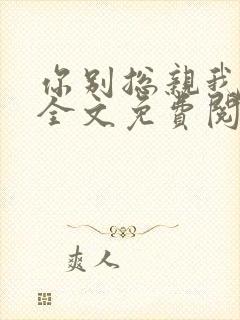 你别总亲我
全文免费阅
爽人